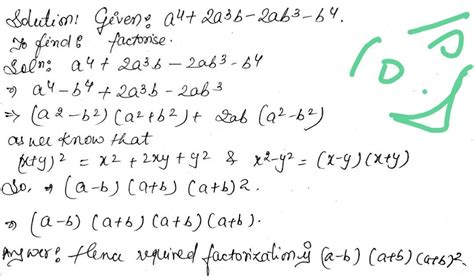 Solution: Given: a⁴ + 2a³b - 2ab³ - b⁴.
To find: factorise.
Soln: a⁴ + 2a³b - 2ab³ - b⁴
⇒ a⁴ - b⁴ + 2a³b - 2ab³
⇒ (a² - b²) (a² + b²) + 2ab (a² - b²)
as we know that
(x+y)² = x² + 2xy + y² & x² - y² = (x-y) (x+y)
So, ⇒ (a-b) (a+b) (a+b)2.
⇒ (a-b) (a+b) (a+b) (a+b).
Answer: Hence required factorization is (a-b) (a+b) (a+b)²